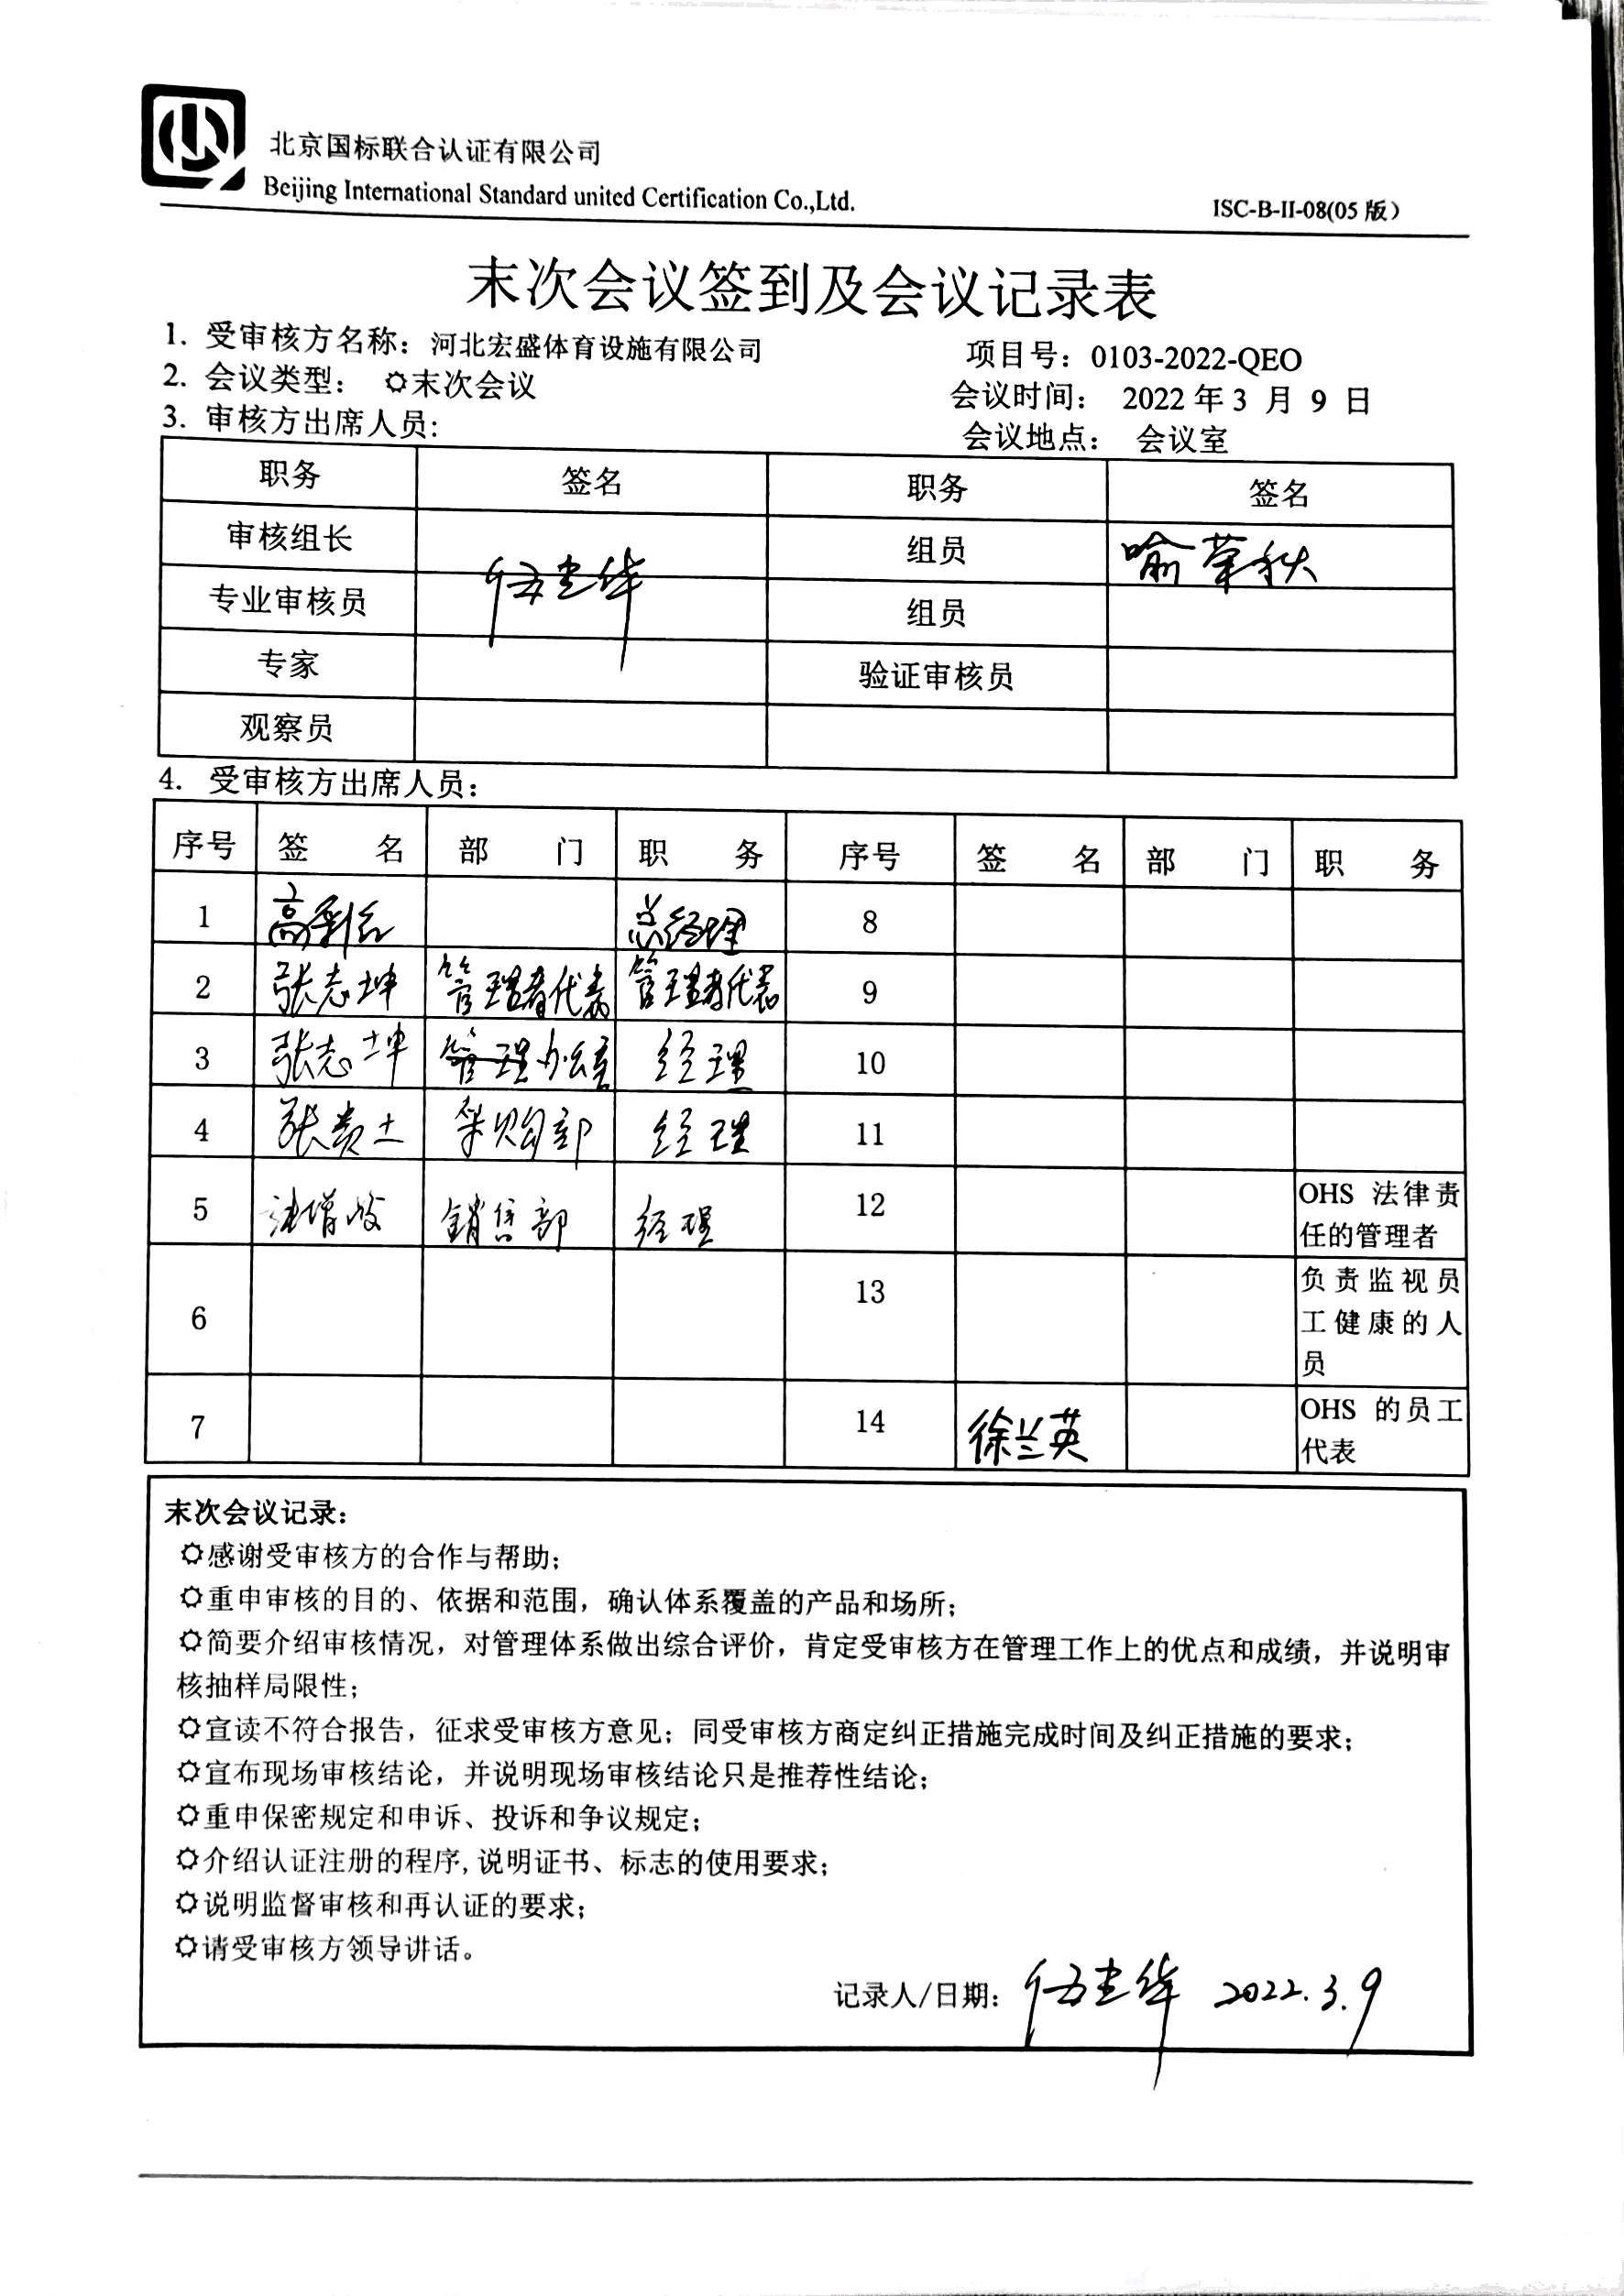 北京国标联合认证有限公司
Beijing International Standard united Certification Co.,Ltd.
ISC-B-II-08(05 版)
末次会议签到及会议记录表
1. 受审核方名称：河北宏盛体育设施有限公司 项目号：0103-2022-QEO
2. 会议类型： 末次会议 会议时间： 2022 年 3 月 9 日
3. 审核方出席人员: 会议地点： 会议室
职务 签名 职务 签名
审核组长 伍建华 组员 喻荣秋
专业审核员 组员
专家 验证审核员
观察员
4. 受审核方出席人员：
序号 签 名 部 门 职 务 序号 签 名 部 门 职 务
1 总经理 8
2 张志坤 管理者代表 管理者代表 9
3 张志坤 管理办公室 经理 10
4 张贵士 采购部 经理 11
5 销售部 经理 12 OHS 法律责
任的管理者
6 13 负责监视员
工健康的人
员
7 14 徐兰英 OHS 的员工
代表
末次会议记录：
感谢受审核方的合作与帮助；
重申审核的目的、依据和范围，确认体系覆盖的产品和场所；
简要介绍审核情况，对管理体系做出综合评价，肯定受审核方在管理工作上的优点和成绩，并说明审
核抽样局限性；
宣读不符合报告，征求受审核方意见；同受审核方商定纠正措施完成时间及纠正措施的要求；
宣布现场审核结论，并说明现场审核结论只是推荐性结论；
重申保密规定和申诉、投诉和争议规定；
介绍认证注册的程序,说明证书、标志的使用要求；
说明监督审核和再认证的要求；
请受审核方领导讲话。
记录人/日期： 伍建华 2022.3.9